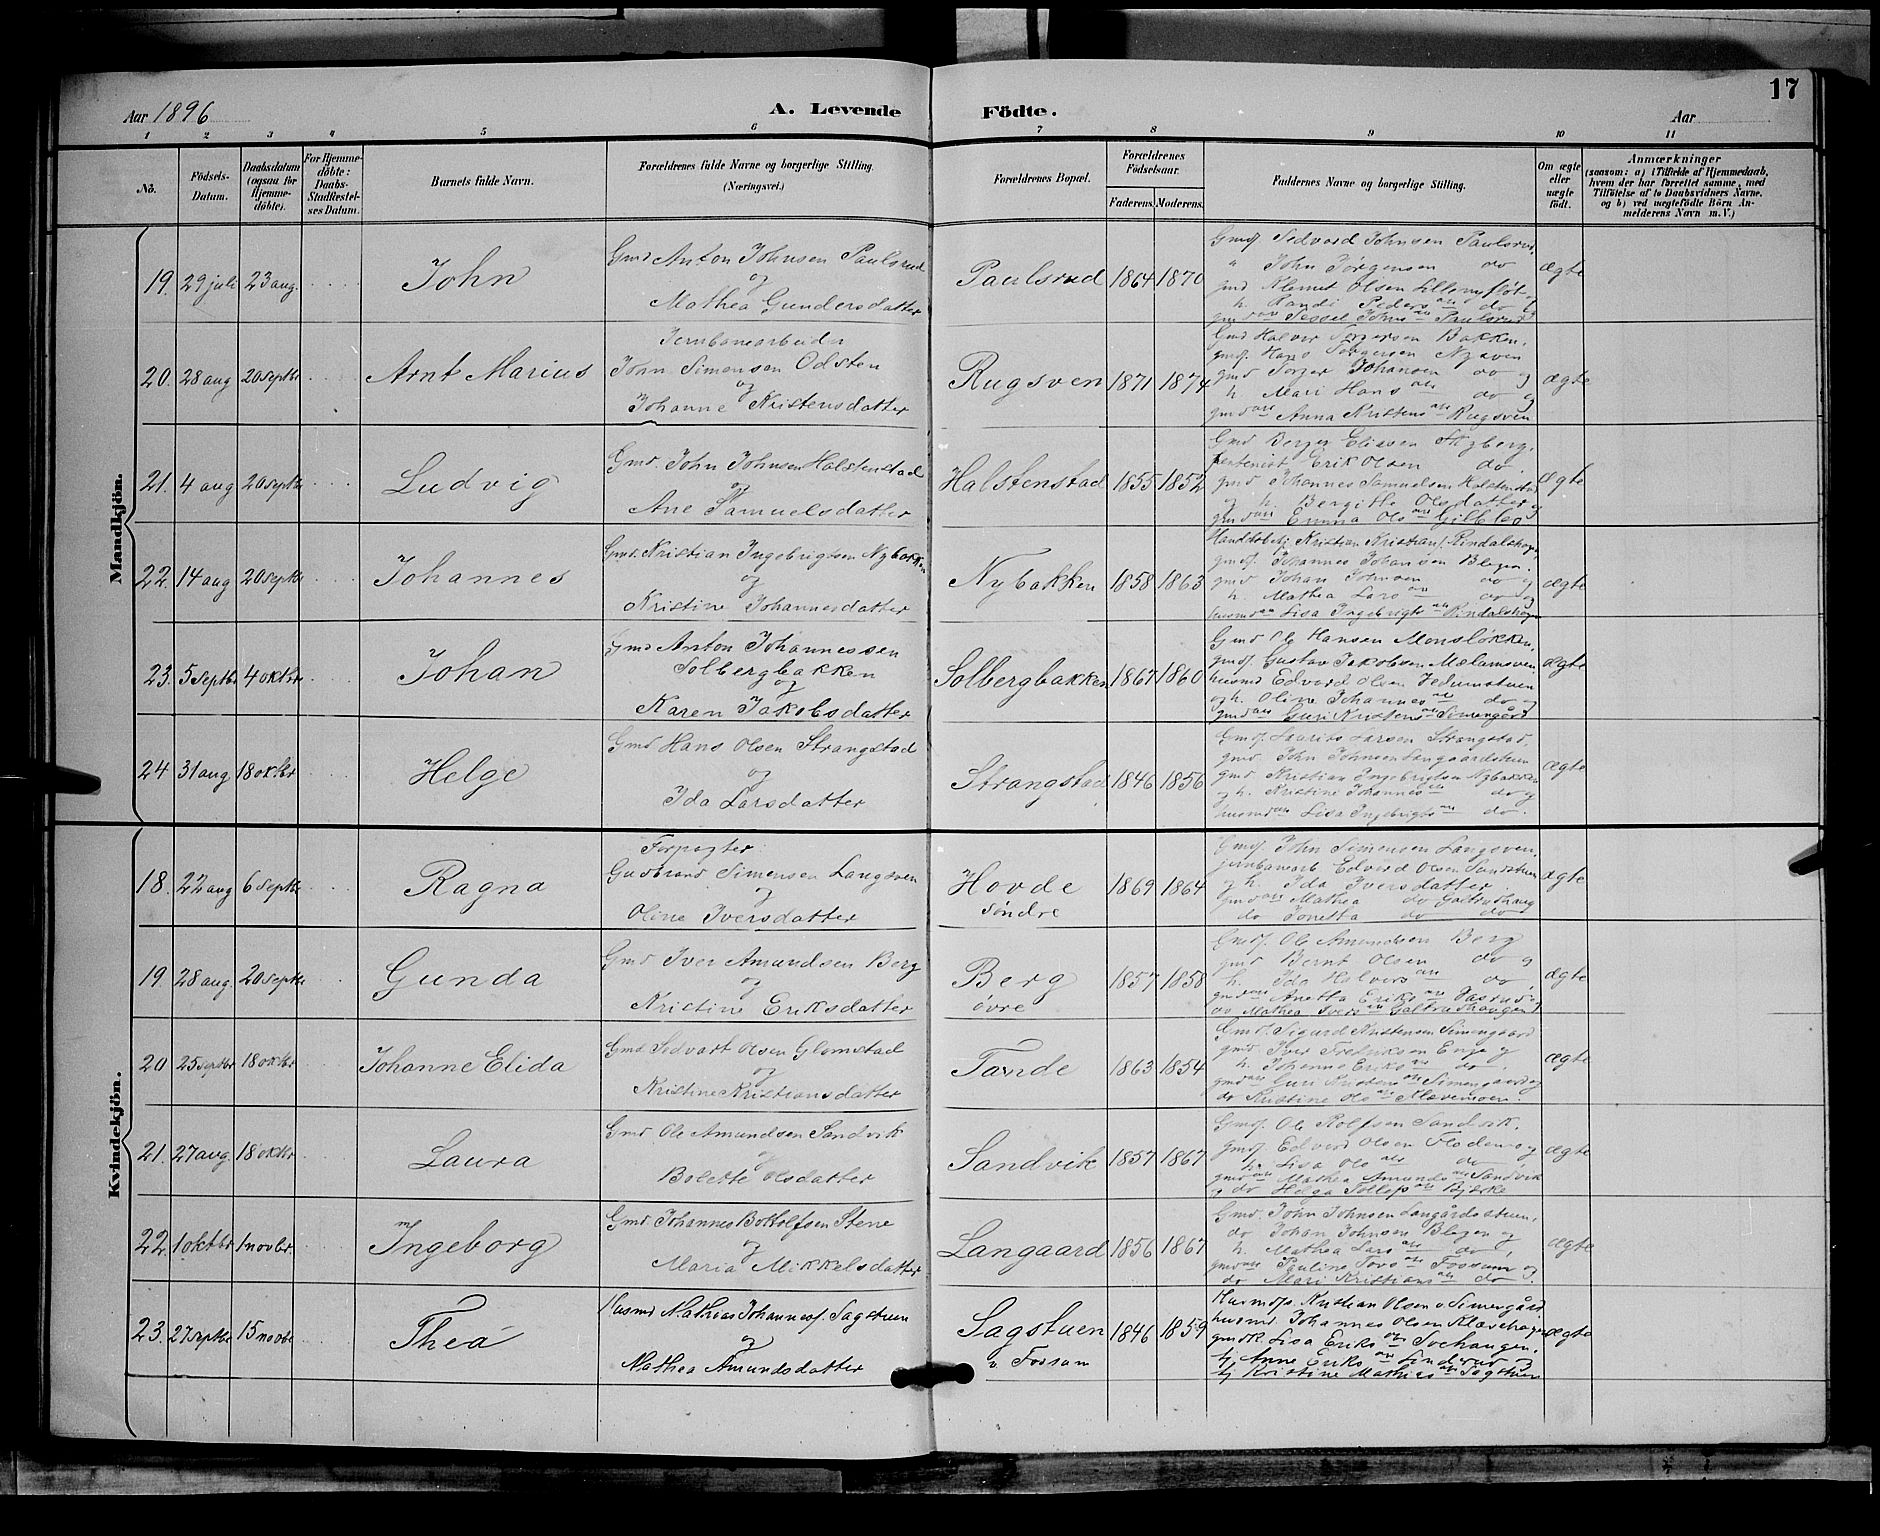 17
Aar 1896
A. Levende
Födte.
Aar
1 2 3 4 5 6 7 8 9 10 11
No.
Födsels-Datum.
Daabsdatum (ogsaa for Hjemme-döbte).
For Hjemme-döbte: Daabs-Stadfæstel-ses Datum.
Barnets fulde Navn.
Forældrenes fulde Navne og borgerlige Stilling. (Næringsvei.)
Forældrenes Bopæl.
Forældrenes Födselsaar.
Faderens. Moderens.
Faddernes Navne og borgerlige Stilling.
Om ægte eller uægte födt.
Anmærkninger
(saasom: a) i Tilfælde af Hjemmedaab,
hvem der har forrettet samme, med
Tilföielse af to Daabsvidners Navne,
og b) ved uægtefödte Börn An-
melderens Navn m. V.)
Mandkjön.
19. 29 juli 23 aug. John
Gmd Anton Johnsen Paulsrud
og
Mathea Gundersdatter
Paulsrud 1864 1870
Gmdf. Sedvard Johnsen Paulsrud,
" John Jörgensen do
gmd Klemet Olsen
h. Randi Peders do og
Sessel Johns Paulsrud
ægte
20. 28 aug 20 septbr Arnt Marius
Jernbanearbeider
John Simensen Odsten
og
Johanne Kristensdatter
Rugsven 1871 1874
Gmd Halvor Bakken,
gmdf. Hans
gmd Johansen do og
h. Mari Hans do og
Anna Kristens Rugsven
ægte
21. 4 aug 20 septbr Ludvig
Gmd. John Johnsen Halstenstad
og
Ane Samuelsdatter
Halstenstad 1855 1852
Gmd Berger Eliasen
Erik Olsen do
gmd Johannes Samuelsen Halstenstad
og h. Bergitte Olsdatter og
Emma Ols
ægte
22. 14 aug 20 septbr Johannes
Gmd. Kristian Ingebrigtsen Nybakken
og
Kristine Johannesdatter
Nybakken 1858 1863
Kristian Kristians.
gmdf. Johannes Johansen
gmd Johan Johnsen do og
h. Mathea Lars do og
Lisa Ingebrigts
ægte
23. 5 septbr 4 oktbr Johan
Gmd Anton Johannessen
Solbergbakken
og
Karen Jakobsdatter
Solbergbakken 1867 1860
Gmd Ole Hansen Monsløkken,
gmdf. Gustav Jakobsen
husmd Edvard Olsen
og h. Oline Johannes do og
Guri Kristens Simengård
ægte
24 31 aug 18 oktbr Helge
Gmd Hans Olsen Strangstad
og
Ida Larsdatter
Strangstad 1846 1856
Gmdf. Laurits Larsen Strangstad,
gmd. John Johnsen Langaardstuen
gmd Kristian Ingebrigtsen Nybakken
og h. Kristine Johannes do og
husmd Lisa Ingebrigts do.
ægte
Kvindekjön.
18. 22 aug 6 septbr Ragna
Forpagter
Gudbrand Simensen Langsven
og
Oline Iversdatter
Hovde
söndre
1869 1864
Gmdf. John Simensen Langsven,
jernbanearb Edvard Olsen
og h. Ida Iversdatter
Mathea do Galtruthaug
do Jonetta do do
ægte
19 28 aug. 20 septbr Gunda
Gmd Iver Amundsen Berg
og
Kristine Eriksdatter
Berg
övre
1857 1858
Gmdf. Ole Amundsen Berg
gmd Bernt Olsen do og
h. Ida Halvors do,
Anetta Eriks
do Mathea Ivers Galtruthaugen
ægte
20 25 septbr 18 oktbr Johanne Elida
Gmd Sedvart Olsen Glomstad
og
Kristine Kristiansdatter
Tande 1863 1854
Gmdf. Sigurd Kristensen Simengaard
gmd. Iver Fredriksen Enge og
h. Johanne Eriks do,
Guri Knutens Simengaard og
do Kristine Ols
ægte
21. 27 aug. 18 oktbr Laura
Gmd. Ole Amundsen Sandvik
og
Bolette Olsdatter
Sandvik 1857 1867
Gmdf. Ole Rolfsen Sandvik.
gmdf Edvard Olsen Floden og
h. Lisa Ols do
Mathea Amunds Sandvik
og do Helga Tollef
ægte
22. 1 oktbr 1 novbr. Ingeborg
Gmd Johannes Bottolfsen Stene
og
Maria Mikkelsdatter
Langaard 1856 1867
Gmd. John Johnsen Langårdsstuen,
do Johan Johnsen og
h. Mathea Lars do,
Pauline Tors Fossum og
do Mari Kristians do.
ægte
23. 27 septbr 15 novbr Thea
Husmd Mathias Johannesf. Sagstuen
og
Mathea Amundsdatter
Sagstuen
u Fossum
1846 1859
Kristian Olsen Simengård
husmd. Johannes Olsen
Lisa Eriks
tj Anne Eriks og
tj Kristine Mathias Sagstuen
ægte